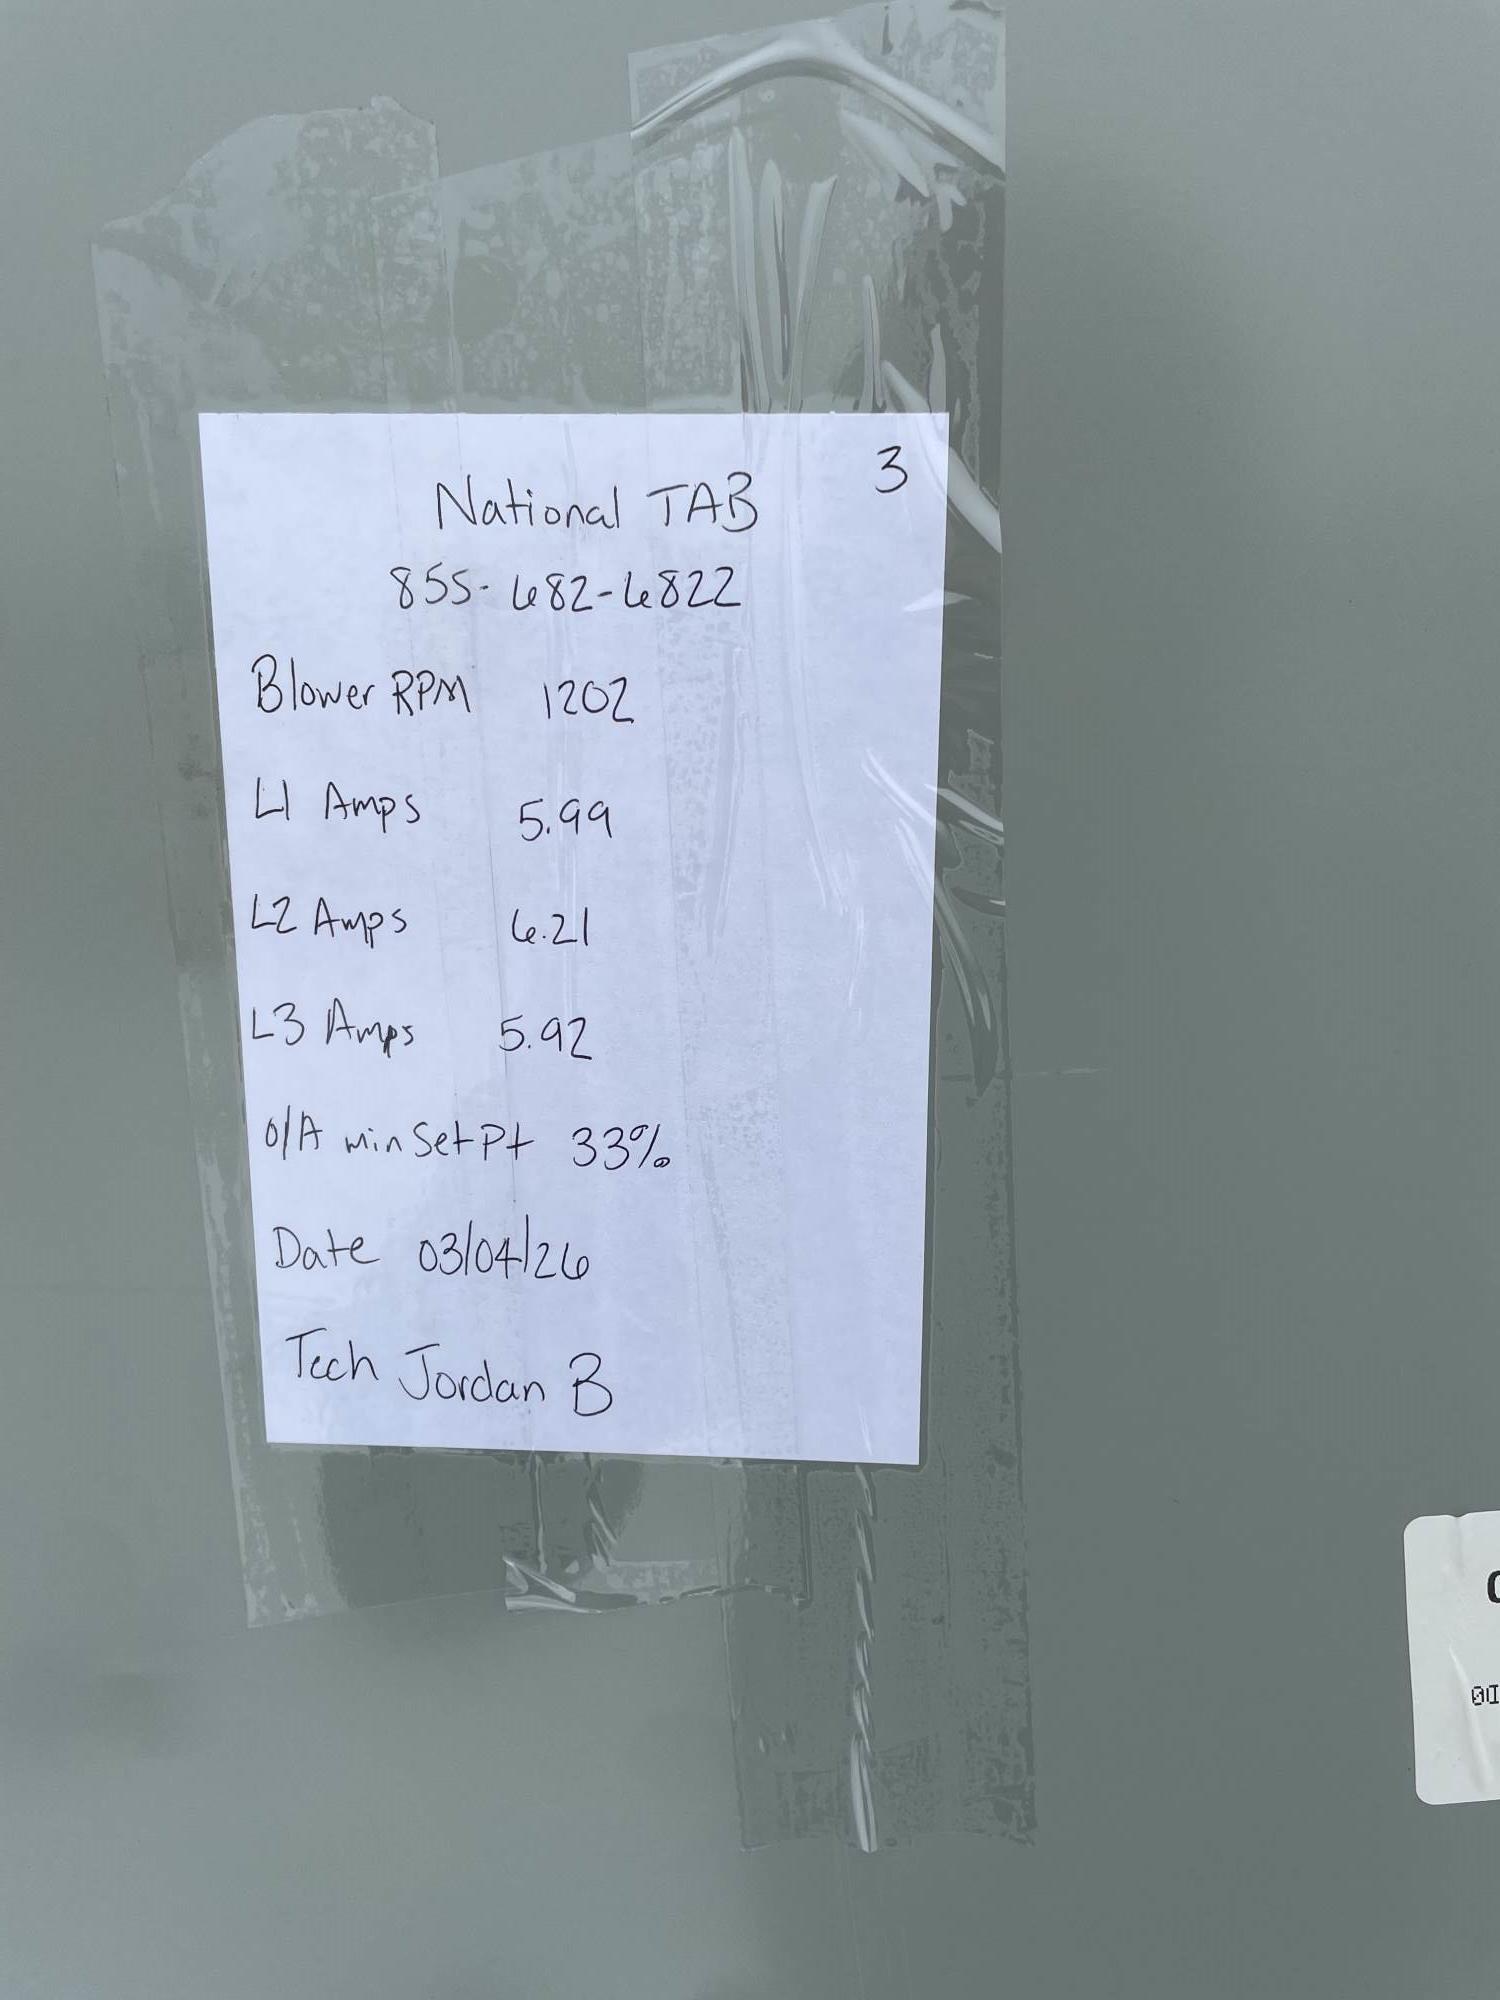 3
National TAB
855-682-6822
Blower RPM 1202
L1 Amps 5.99
L2 Amps 6.21
L3 Amps 5.92
O/A min Set Pt 33%
Date 03/04/26
Tech Jordan B